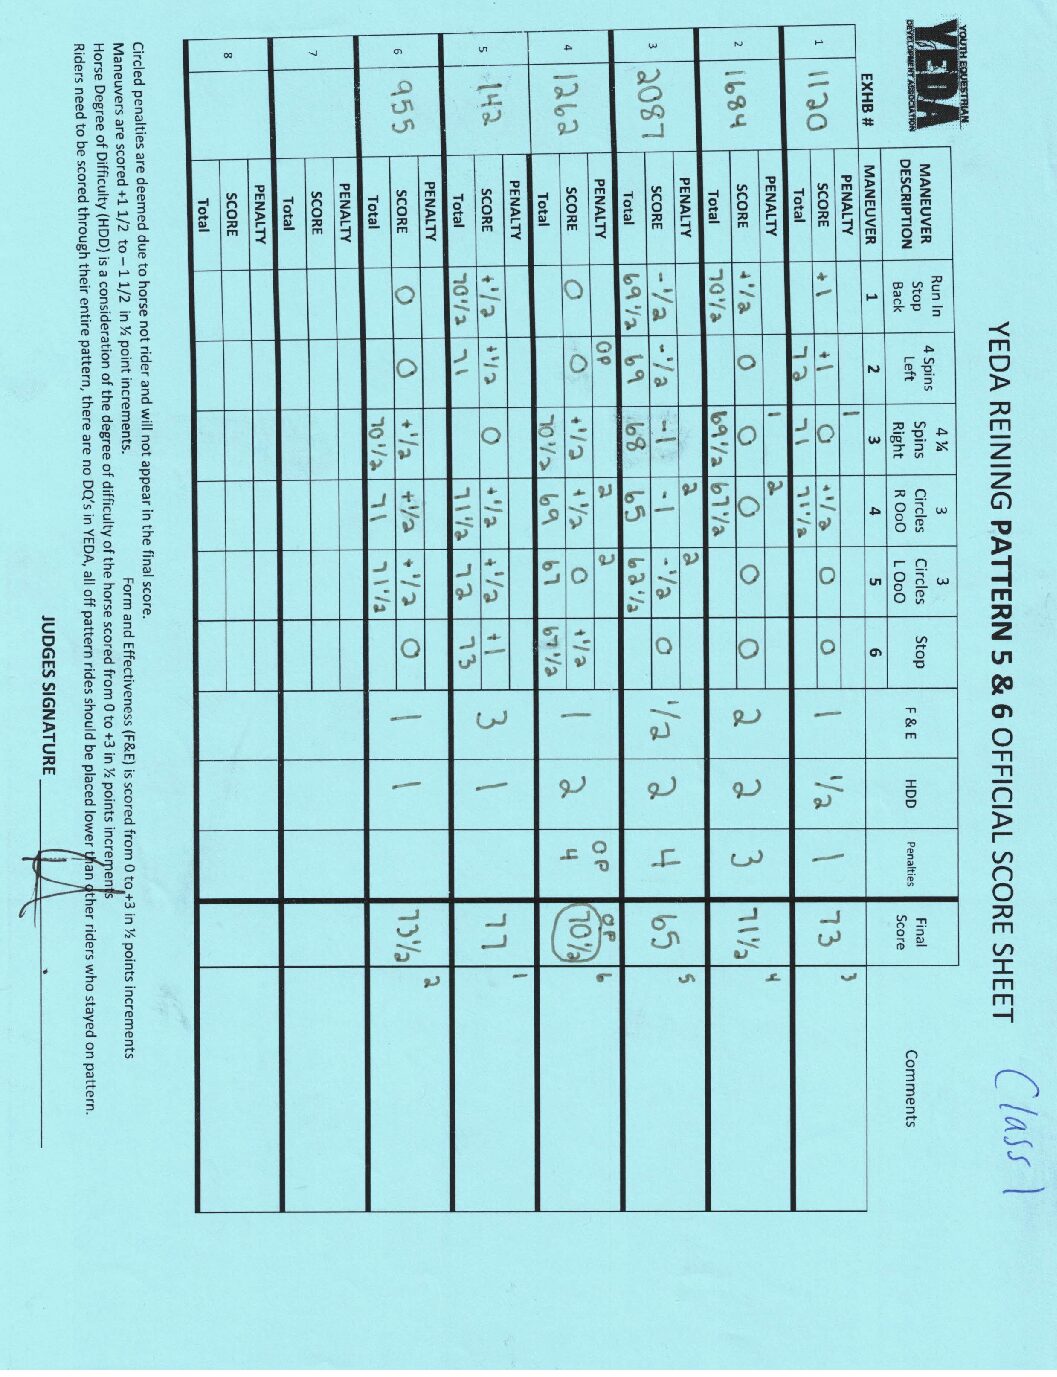 YOUTH EQUESTRIAN
YEDA
DEVELOPMENT ASSOCIATION
YEDA REINING PATTERN 5 & 6 OFFICIAL SCORE SHEET Class 1
MANEUVER DESCRIPTION Run In Stop Back 4 Spins Left 4 ¼ Spins Right 3 Circles R OoO 3 Circles L OoO Stop F & E HDD Penalties Final Score Comments
EXHB # MANEUVER 1 2 3 4 5 6
1 1120
PENALTY 1
SCORE +1 +1 0 +1/2 0 0 1 1/2 1 73 3
Total 72 71 71 1/2
2 1684
PENALTY 1 2
SCORE +1/2 0 0 0 0 0 2 2 3 71 1/2 4
Total 70 1/2 69 1/2 67 1/2
3 2087
PENALTY 2 2
SCORE -1/2 -1/2 -1 -1 -1/2 0 1/2 2 4 65 5
Total 69 1/2 69 68 65 62 1/2
4 1262
PENALTY OP 2 2 OP OP
SCORE 0 0 +1/2 +1/2 0 +1/2 1 2 4 70 1/2 6
Total 70 1/2 69 67 67 1/2
5 142
PENALTY
SCORE +1/2 +1/2 0 +1/2 +1/2 +1 3 1 77 1
Total 70 1/2 71 71 1/2 72 73
6 955
PENALTY
SCORE 0 0 +1/2 +1/2 +1/2 0 1 1 73 1/2 2
Total 70 1/2 71 71 1/2
7
PENALTY
SCORE
Total
8
PENALTY
SCORE
Total
Circled penalties are deemed due to horse not rider and will not appear in the final score.
Maneuvers are scored +1 1/2 to – 1 1/2 in ½ point increments. Form and Effectiveness (F&E) is scored from 0 to +3 in ½ points increments
Horse Degree of Difficulty (HDD) is a consideration of the degree of difficulty of the horse scored from 0 to +3 in ½ points increments
Riders need to be scored through their entire pattern, there are no DQ's in YEDA, all off pattern rides should be placed lower than other riders who stayed on pattern.
JUDGES SIGNATURE